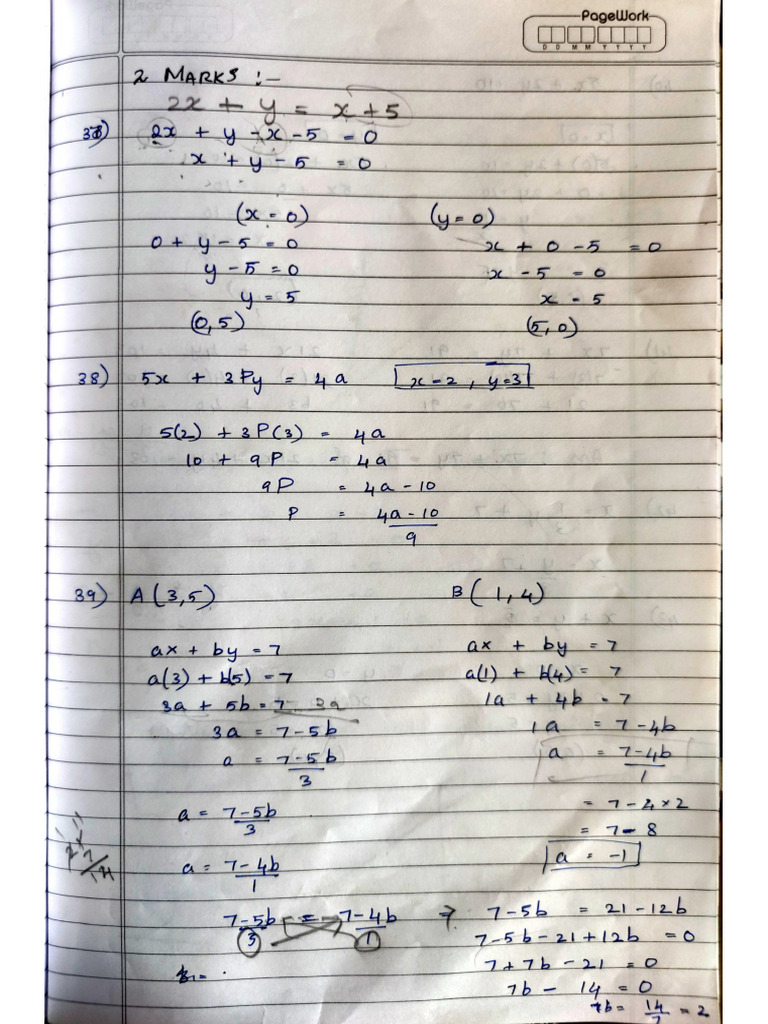 PageWork
D D M M Y Y Y Y
2 MARKS :-
2x + y = x + 5
37) 2x + y - x - 5 = 0
x + y - 5 = 0
(x = 0) (y = 0)
0 + y - 5 = 0 x + 0 - 5 = 0
y - 5 = 0 x - 5 = 0
y = 5 x = 5
(0, 5) (5, 0)
38) 5x + 3Py = 4a x = 2, y = 3
5(2) + 3P(3) = 4a
10 + 9P = 4a
9P = 4a - 10
P = 4a - 10
9
39) A (3,5) B ( 1, 4)
ax + by = 7 ax + by = 7
a(3) + b(5) = 7 a(1) + b(4) = 7
3a + 5b = 7 - 3a 1a + 4b = 7
3a = 7 - 5b 1a = 7 - 4b
a = 7 - 5b a = 7 - 4b
3 1
a = 7 - 5b = 7 - 4 × 2
3 = 7 - 8
a = 7 - 4b a = -1
1
7 - 5b = 7 - 4b ⇒ 7 - 5b = 21 - 12b
3 1 7 - 5b - 21 + 12b = 0
7 + 7b - 21 = 0
7b - 14 = 0
7b = 14 = 2
7